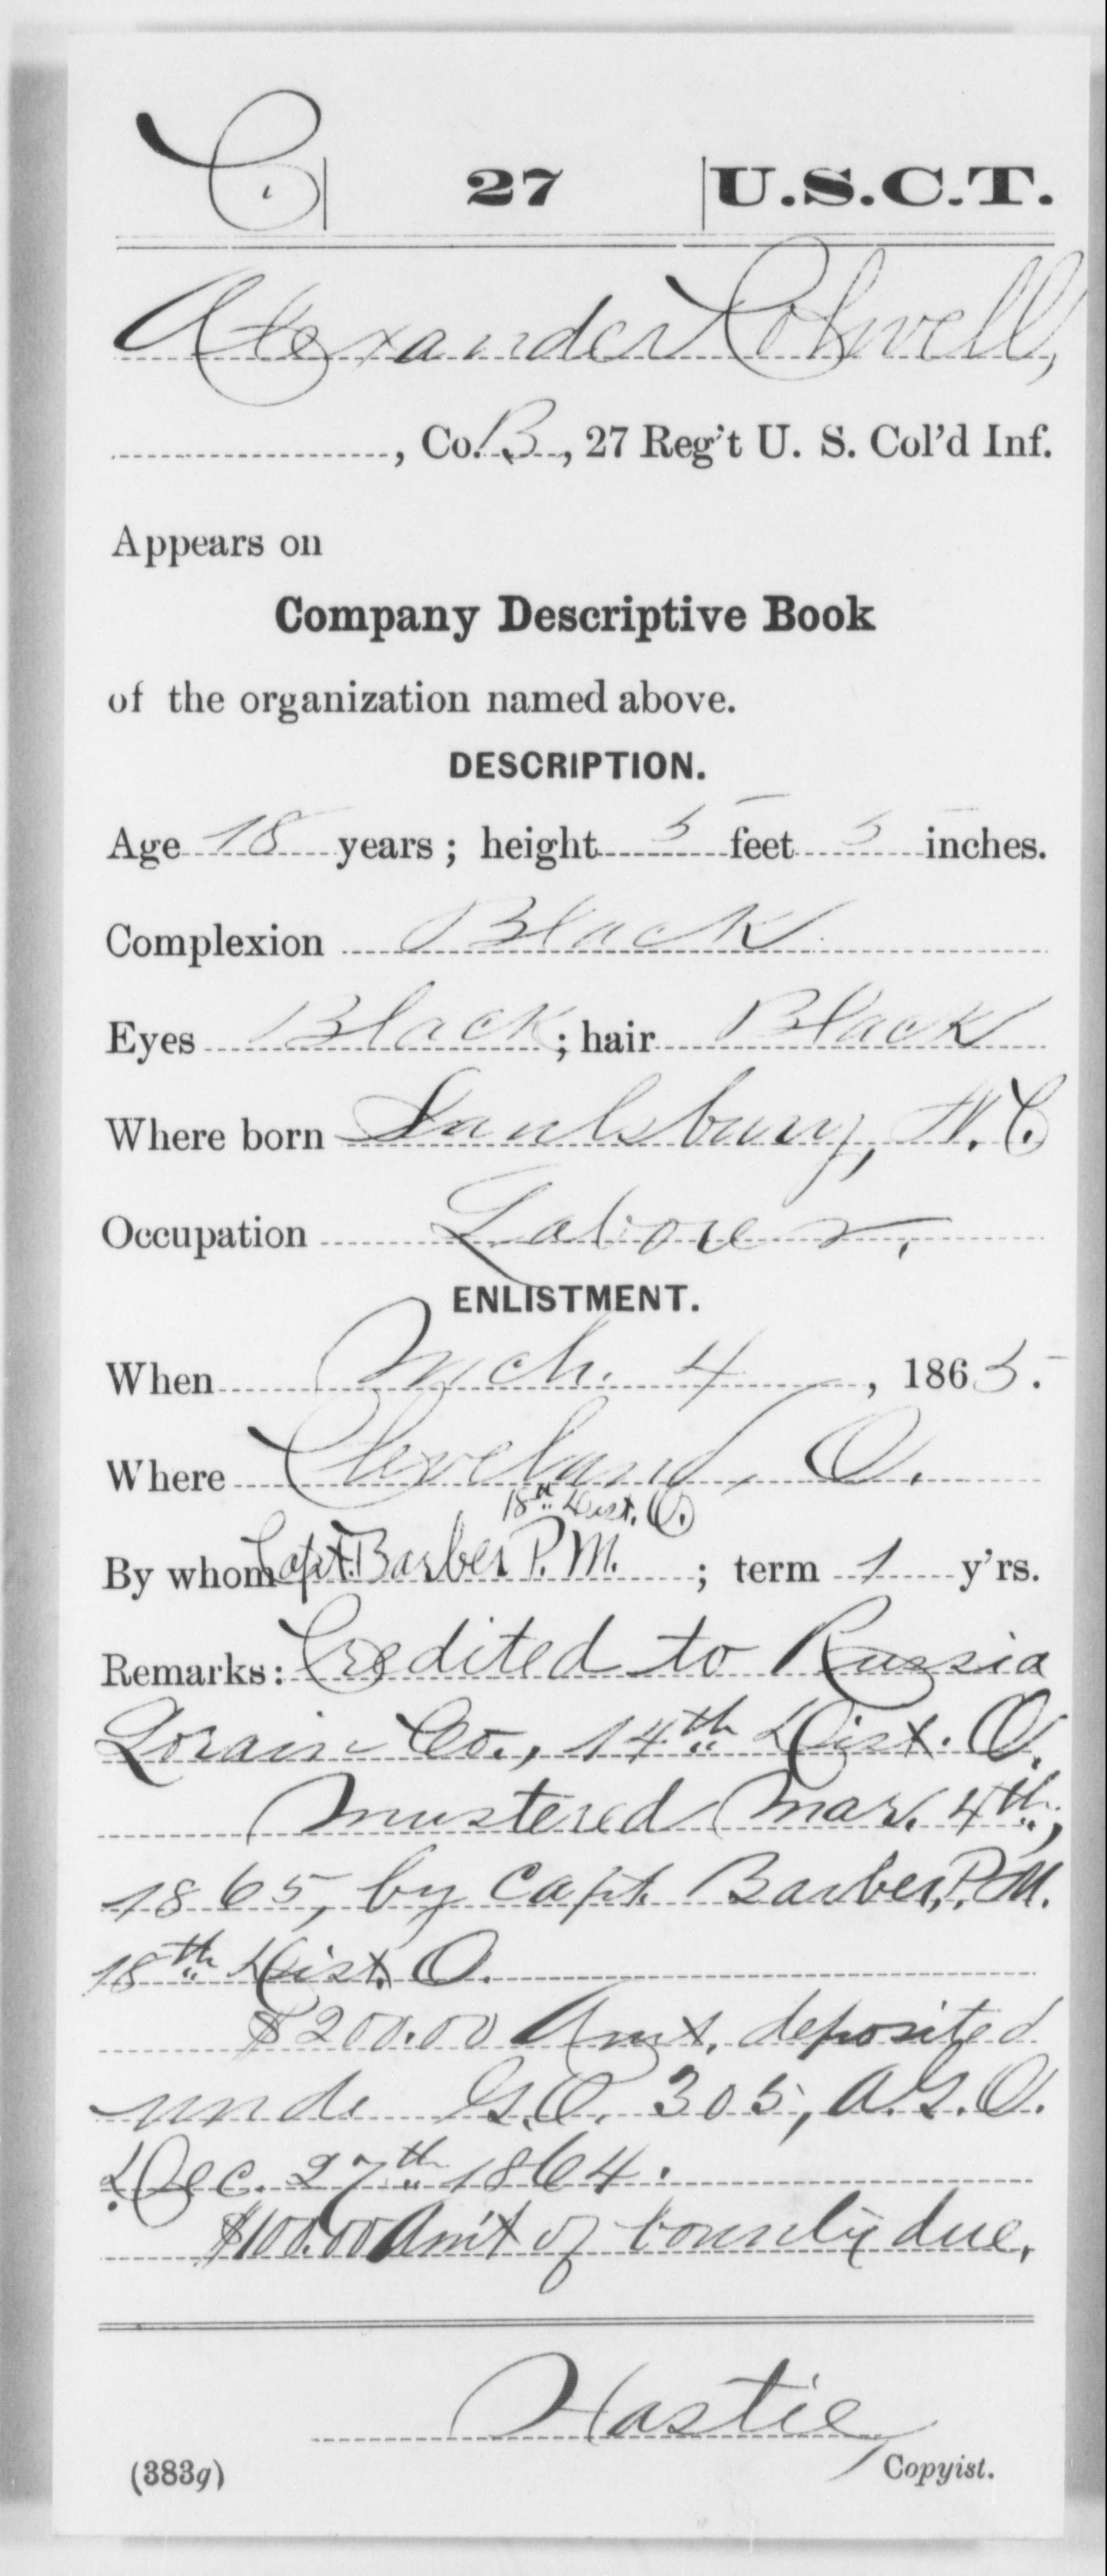 C | 27 | U.S.C.T.
Alexander Colwell,
, Co. B, 27 Reg't U. S. Col'd Inf.
Appears on
Company Descriptive Book
of the organization named above.
DESCRIPTION.
Age 18 years; height 5 feet 5 inches.
Complexion Black
Eyes Black; hair Black
Where born Saulsbury, N.C.
Occupation Laborer.
ENLISTMENT.
When Mch. 4, 1865.
Where Cleveland, O.
18th Dist. O.
By whom Capt. Barber P.M.; term 1 y'rs.
Remarks: Credited to Russia
Lorain Co., 14th Dist. O.
Mustered Mar. 4th,
1865, by Capt. Barber, P.M.
18th Dist. O.
$200.00 Amt. deposited
unde G.O. 305, A.G.O.
Dec. 27th 1864.
$100.00 Am't of bounty due.
Hastie
(383g) Copyist.